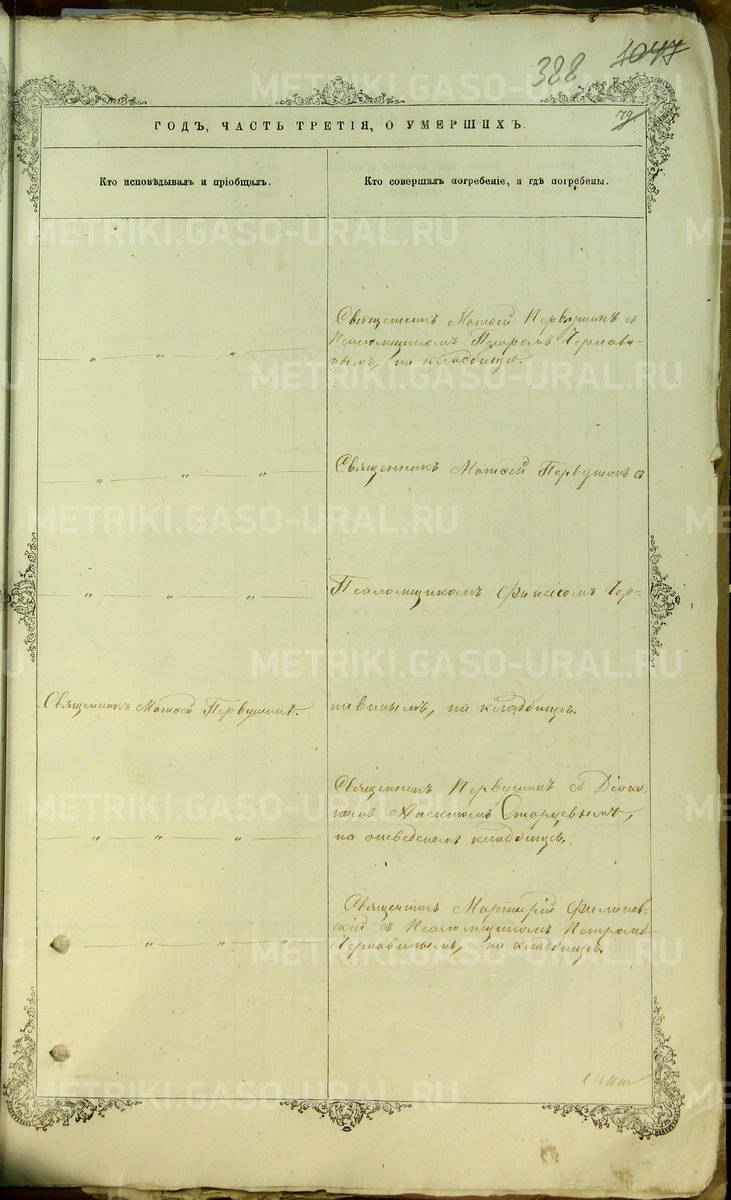 388 1047
79
ГОДЪ, ЧАСТЬ ТРЕТІЯ, О УМЕРШИХЪ.
Кто исповѣдывалъ и пріобщалъ.
Кто совершалъ погребеніе, и гдѣ погребены.
Священникъ Матѳей Первушинъ съ
Псаломщикомъ Петромъ Чернави-
нымъ, на кладбищѣ.
Священникъ Матѳей Первушинъ съ
Псаломщикомъ Финеесомъ Чер-
Священникъ Матѳей Первушинъ.
навинымъ, на кладбищѣ.
Священникъ Первушинъ съ Діако-
номъ Старцевымъ,
на отведеномъ кладбищѣ.
Священникъ Мартирій Филипов-
скій съ Псаломщикомъ Петромъ
Чернавинымъ, на кладбищѣ.
METRIKI.GASO-URAL.RU